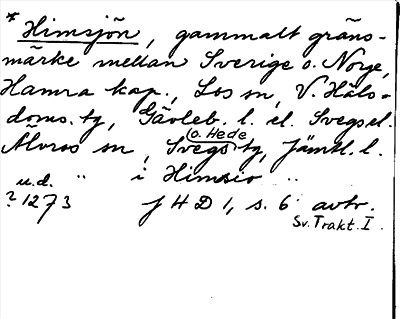 * Himsjön, gammalt gräns-
märke mellan Sverige o. Norge,
Hamra kap., Los sn, V. Häls-
doms. tg, Gävleb. l. el. Svegs el.
Älvros sn, Svegs o. Hede tg, Jämtl. l.
u.d. " i Himsio "
? 1273 J H D 1, s. 6 avtr.
Sv. Trakt. I.